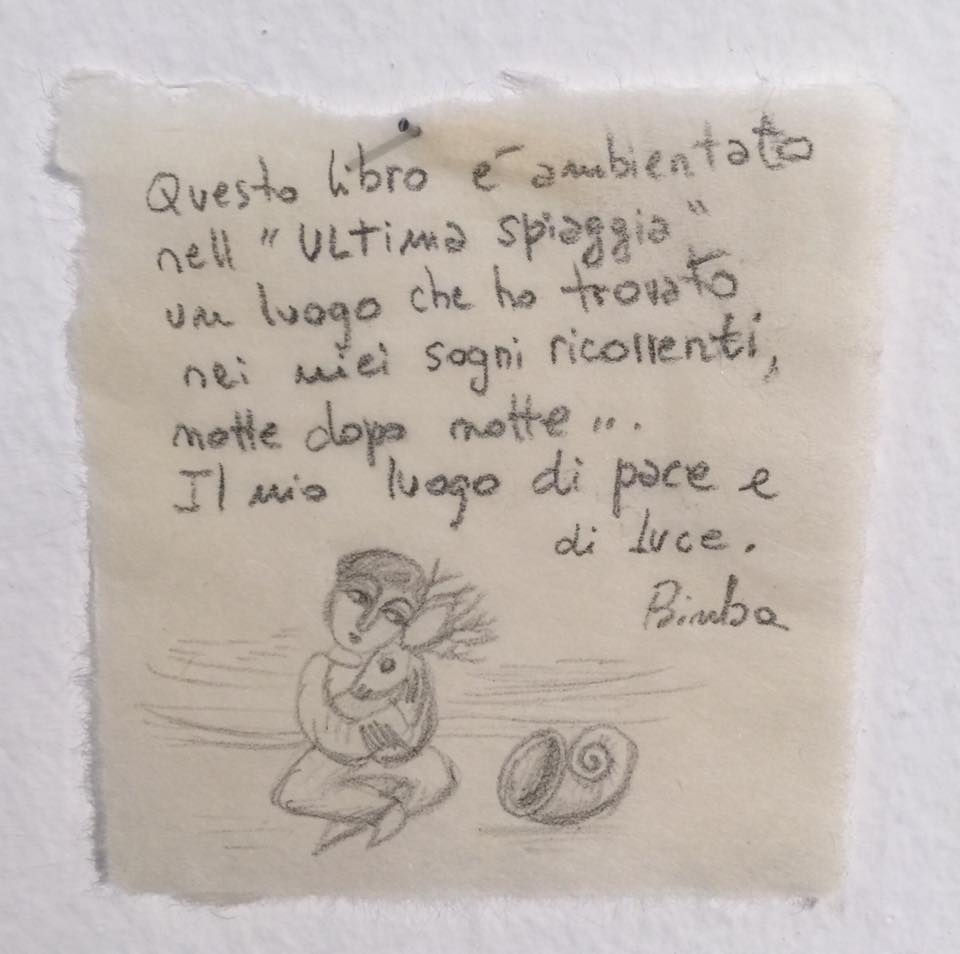 Questo libro é ambientato
nell "ULTIMA spiaggia"
un luogo che ho trovato
nei miei sogni ricorrenti,
notte dopo notte ...
Il mio luogo di pace e
di luce.
Bimba